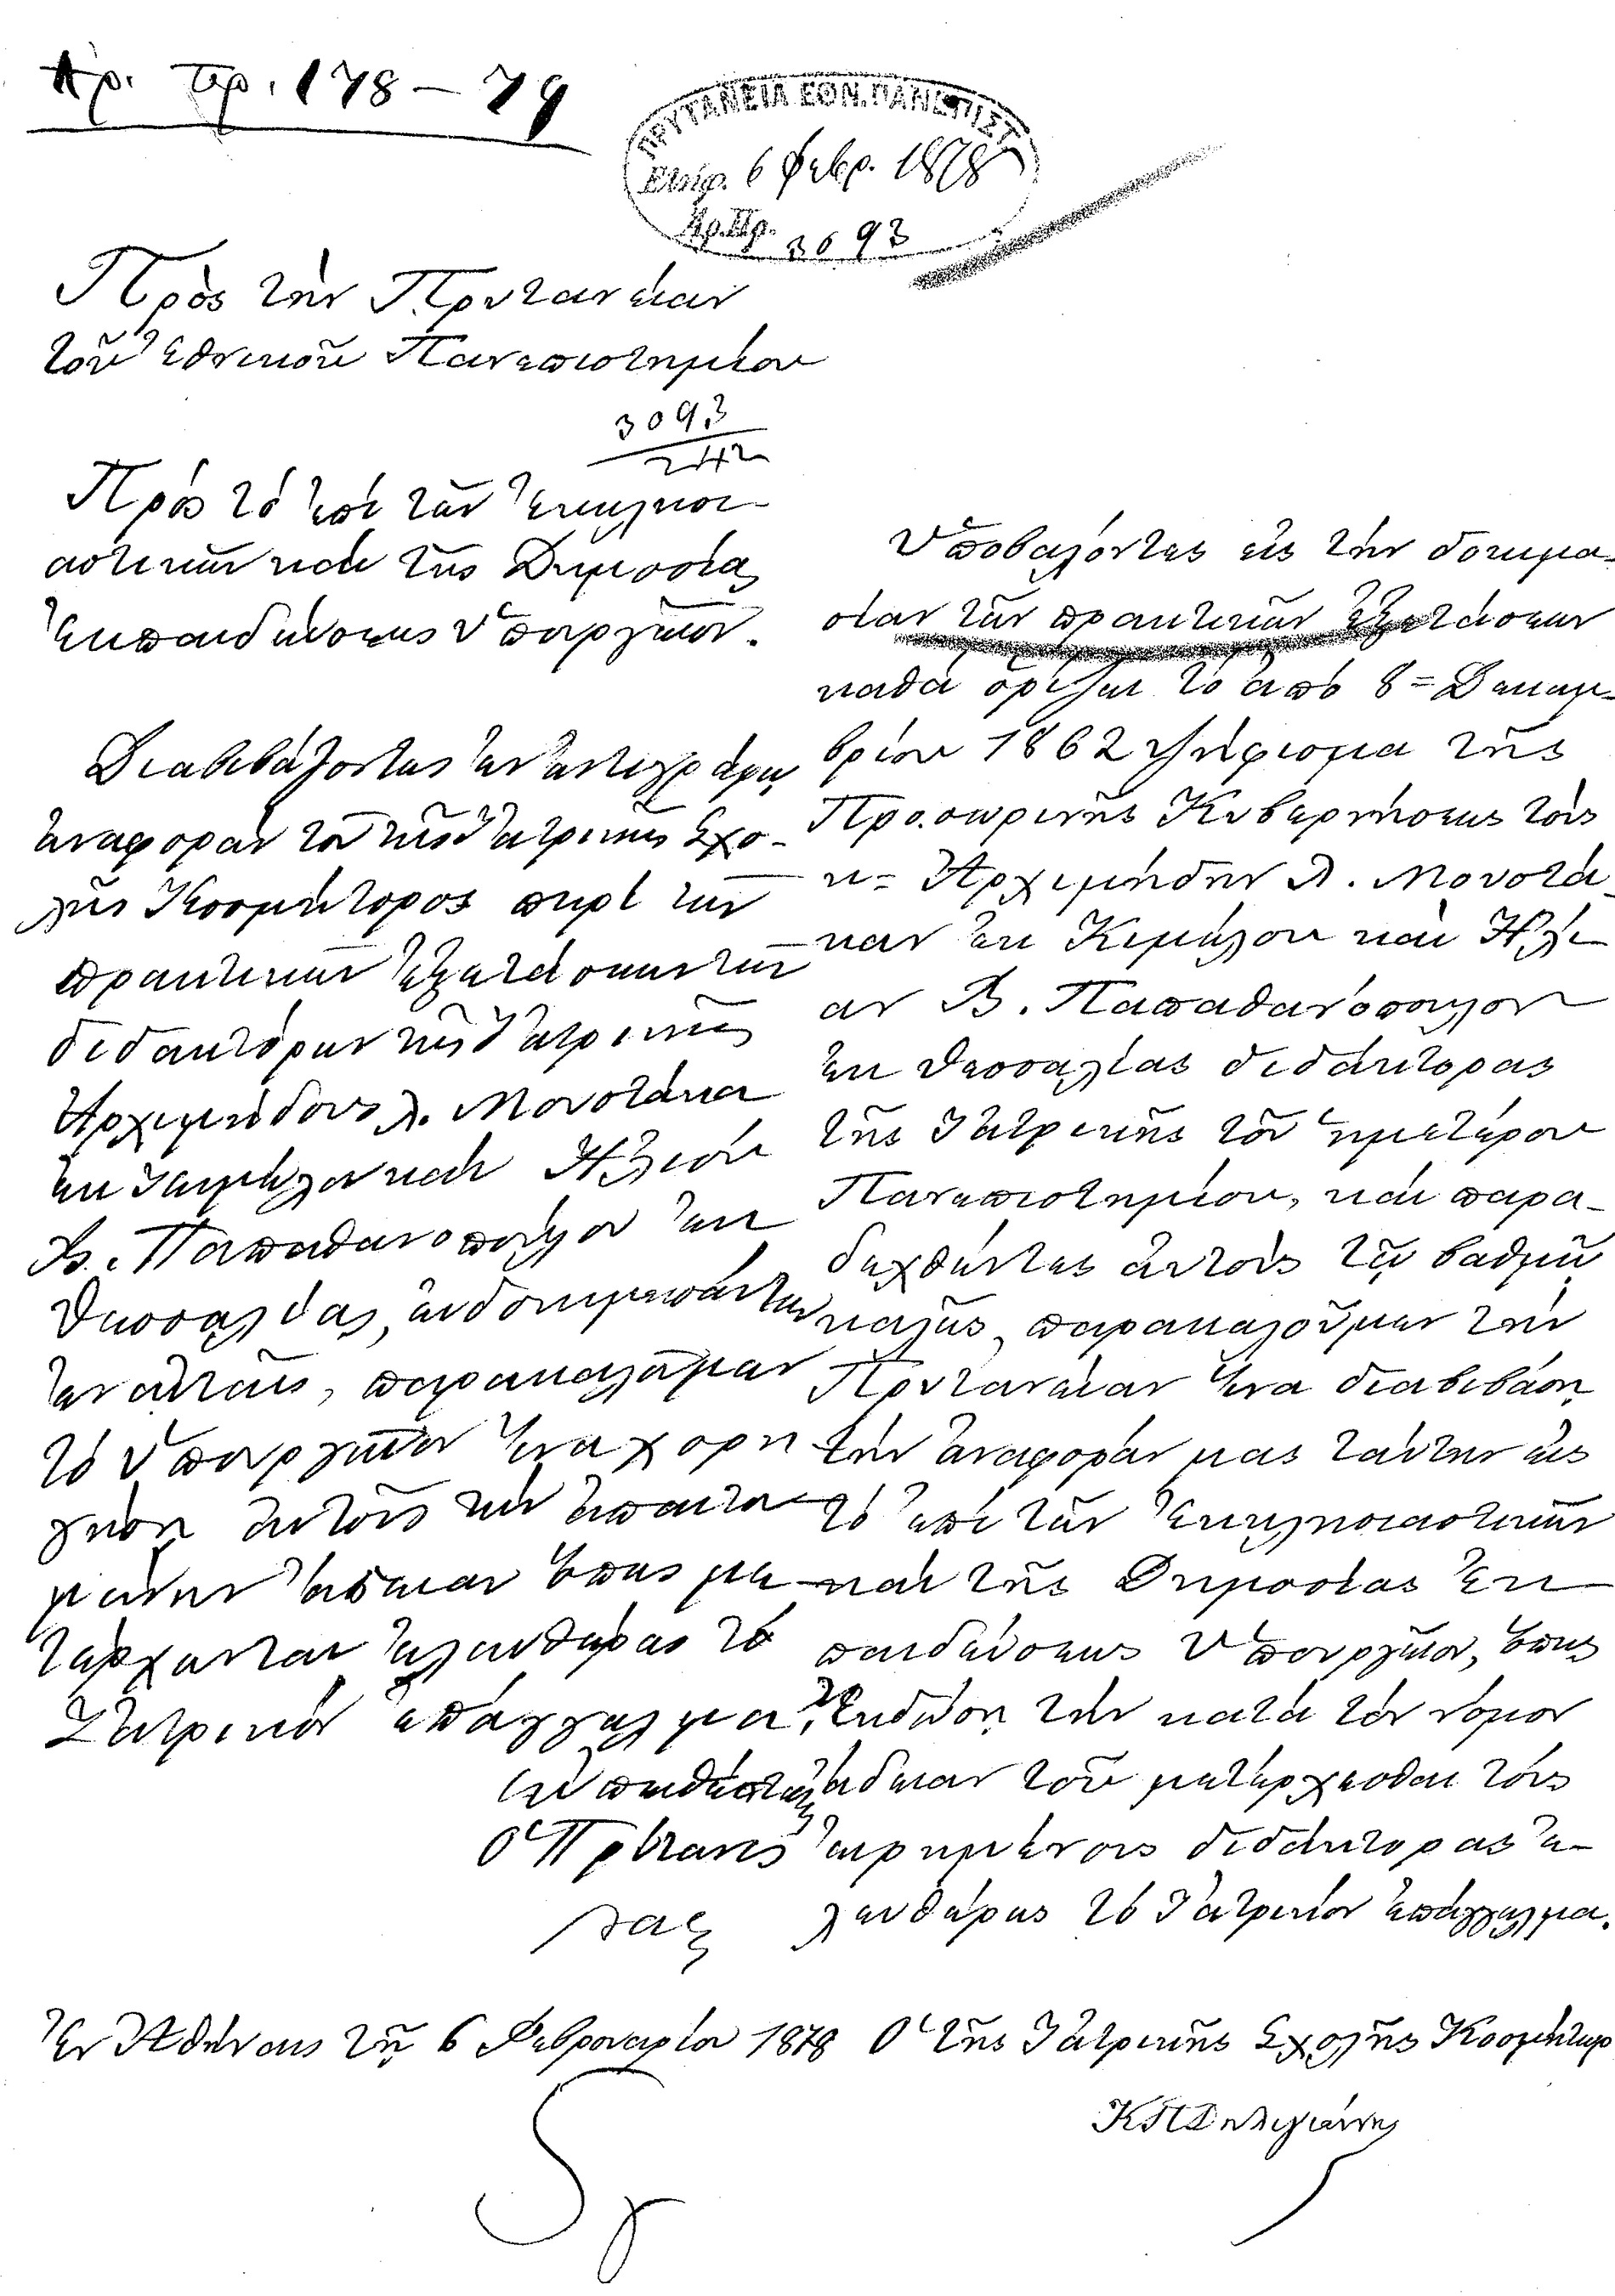 Αρ. Πρ. 178-79
ΠΡΥΤΑΝΕΙΑ ΕΘΝ. ΠΑΝΕΠΙΣΤ
6 Φεβρ. 1878
Αρ.Πρ. 3093
Πρὸς τὴν Πρυτανείαν
τοῦ Ἐθνικοῦ Πανεπιστημίου
3093
Πρὸς τὸ ἐπὶ τῶν Ἐκκλησι-
αστικῶν καὶ τῆς Δημοσίας
Ἐκπαιδεύσεως Ὑπουργεῖον.
Διαβιβάζοντες ἐν ἀντιγράφῳ
ἀναφορὰν τοῦ τῆς Ἰατρικῆς Σχο-
λῆς Κοσμήτορος περὶ τῶν
πρακτικῶν ἐξετάσεων τῶν
διδακτόρων τῆς Ἰατρικῆς
Ἀρχιμήδους Λ. Μουστάκα
ἐκ Κιμώλου καὶ Ἠλιοῦ
Β. Παπαθανοπούλου ἐκ
Θεσσαλίας, εὐδοκιμησάντων
ἐν αὐταῖς, παρακαλοῦμεν
τὸ Ὑπουργεῖον ἵνα χορη
γήσῃ αὐτοῖς τὴν ἀπαιτου
μένην ἄδειαν ὅπως με
τέρχωνται ἐλευθέρως τὸ
Ἰατρικὸν ἐπάγγελμα.
Εὐπειθέστατος
Ὁ Πρύτανις
Ὑποβαλόντες εἰς τὴν δοκιμα-
σίαν τῶν πρακτικῶν ἐξετάσεων
καθὰ ὁρίζει τὸ ἀπὸ 8= Δεκεμ-
βρίου 1862 ψήφισμα τῆς
Προσωρινῆς Κυβερνήσεως τοὺς
κ= Ἀρχιμήδην Λ. Μουστά-
καν ἐκ Κιμώλου καὶ Ἠλί-
αν Β. Παπαθανόπουλον
ἐκ Θεσσαλίας διδάκτορας
τῆς Ἰατρικῆς τοῦ ἡμετέρου
Πανεπιστημίου, καὶ παρα-
δεχθέντες αὐτοὺς τῷ βαθμῷ
καλῶς, παρακαλοῦμεν τὴν
Πρυτανείαν ἵνα διαβιβάσῃ
τὴν ἀναφοράν μας ταύτην εἰς
τὸ ἐπὶ τῶν Ἐκκλησιαστικῶν
καὶ τῆς Δημοσίας Ἐκ
παιδεύσεως Ὑπουργεῖον, ὅπως
ἐκδώσῃ τὴν κατὰ τὸν νόμον
ἄδειαν τοῦ μετέρχεσθαι τοὺς
εἰρημένους διδάκτορας ἐ-
λευθέρως τὸ Ἰατρικὸν ἐπάγγελμα.
Ἐν Ἀθήναις τῇ 6 Φεβρουαρίου 1878 Ὁ τῆς Ἰατρικῆς Σχολῆς Κοσμήτωρ
ΚΠΔηλιγιάννης